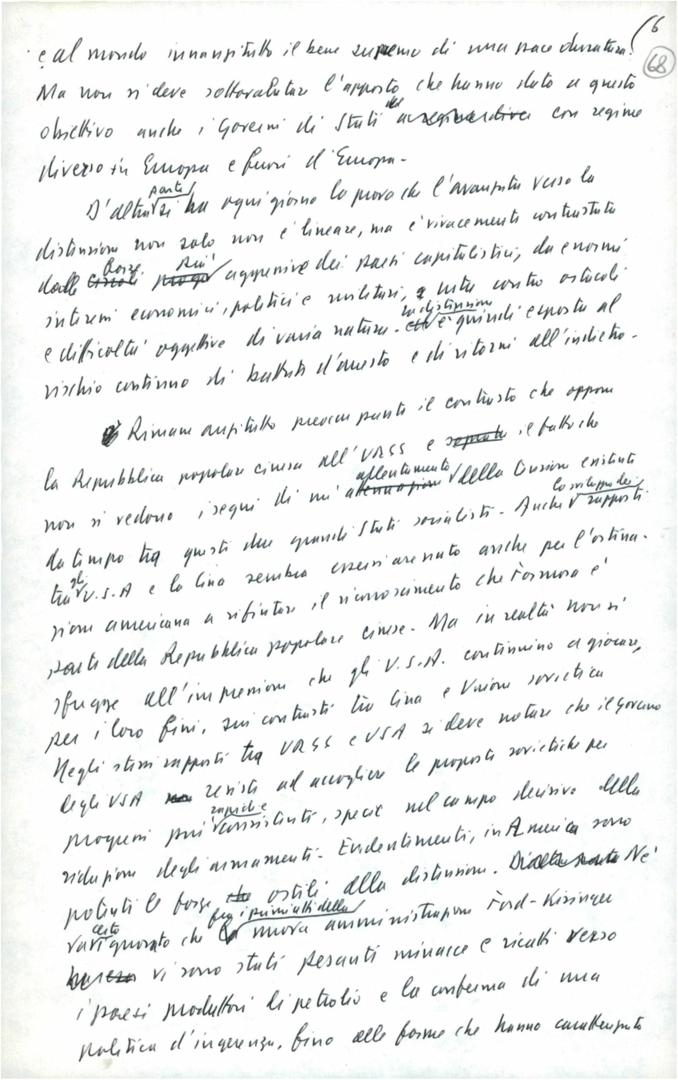 6
68
e al mondo innanzitutto il bene supremo di una pace duratura.
Ma non si deve sottovalutare l'apporto che hanno dato a questo
obiettivo anche i Governi di Stati con regime
diverso in Europa e fuori d'Europa -
D'altra parte si ha ogni giorno la prova che l'avanzata verso la
distensione non solo non è lineare, ma è vivacemente contrastata
dalle forze più aggressive dei paesi capitalistici, da enormi
interessi economici, politici e militari, e urta contro ostacoli
e difficoltà oggettive di varia natura. La distensione è quindi esposta al
rischio continuo di battute d'arresto e di ritorni all'indietro -
Rimane anzitutto preoccupante il contrasto che oppone
la Repubblica popolare cinese all'URSS e il fatto che
non si vedono i segni di un allentamento della tensione esistente
da tempo tra questi due grandi Stati socialisti - Anche lo sviluppo dei rapporti
tra gli U.S.A e la Cina sembra essersi arenato anche per l'ostina-
zione americana a rifiutare il riconoscimento che Formosa è
parte della Repubblica popolare cinese - Ma in realtà non si
sfugge all'impressione che gli U.S.A. continuino a giocare,
per i loro fini, sui contrasti tra Cina e Unione sovietica
Negli stessi rapporti tra URSS e USA si deve notare che il Governo
degli USA resiste ad accogliere le proposte sovietiche per
progressi più rapidi e consistenti, specie nel campo decisivo della
riduzione degli armamenti - Evidentemente, in America sono
potenti le forze ostili alla distensione. Né
va certo ignorato che fra i primi atti della nuova amministrazione Ford-Kissinger
vi sono stati pesanti minacce e ricatti verso
i paesi produttori di petrolio e la conferma di una
politica d'ingerenza, fino alle forme che hanno caratterizzato